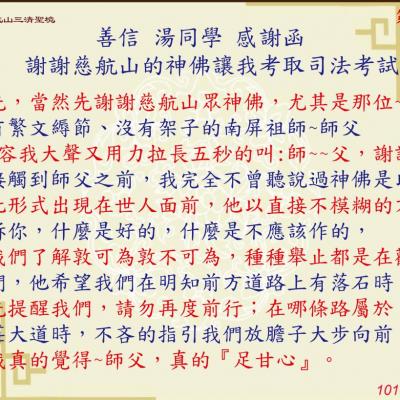 航山三清聖境
善信 湯同學 感謝函
謝謝慈航山的神佛讓我考取司法考試
，當然先謝謝慈航山眾神佛，尤其是那位~
繁文縟節、沒有架子的南屏祖師~師父
容我大聲又用力拉長五秒的叫:師~~父，謝
接觸到師父之前，我完全不曾聽說過神佛是
形式出現在世人面前，他以直接不模糊的方
訴你，什麼是好的，什麼是不應該作的，
我們了解敦可為敦不可為，種種舉止都是在
們，他希望我們在明知前方道路上有落石時
提醒我們，請勿再度前行；在哪條路屬於
大道時，不吝的指引我們放膽子大步向前
真的覺得~師父，真的『足甘心』。
101